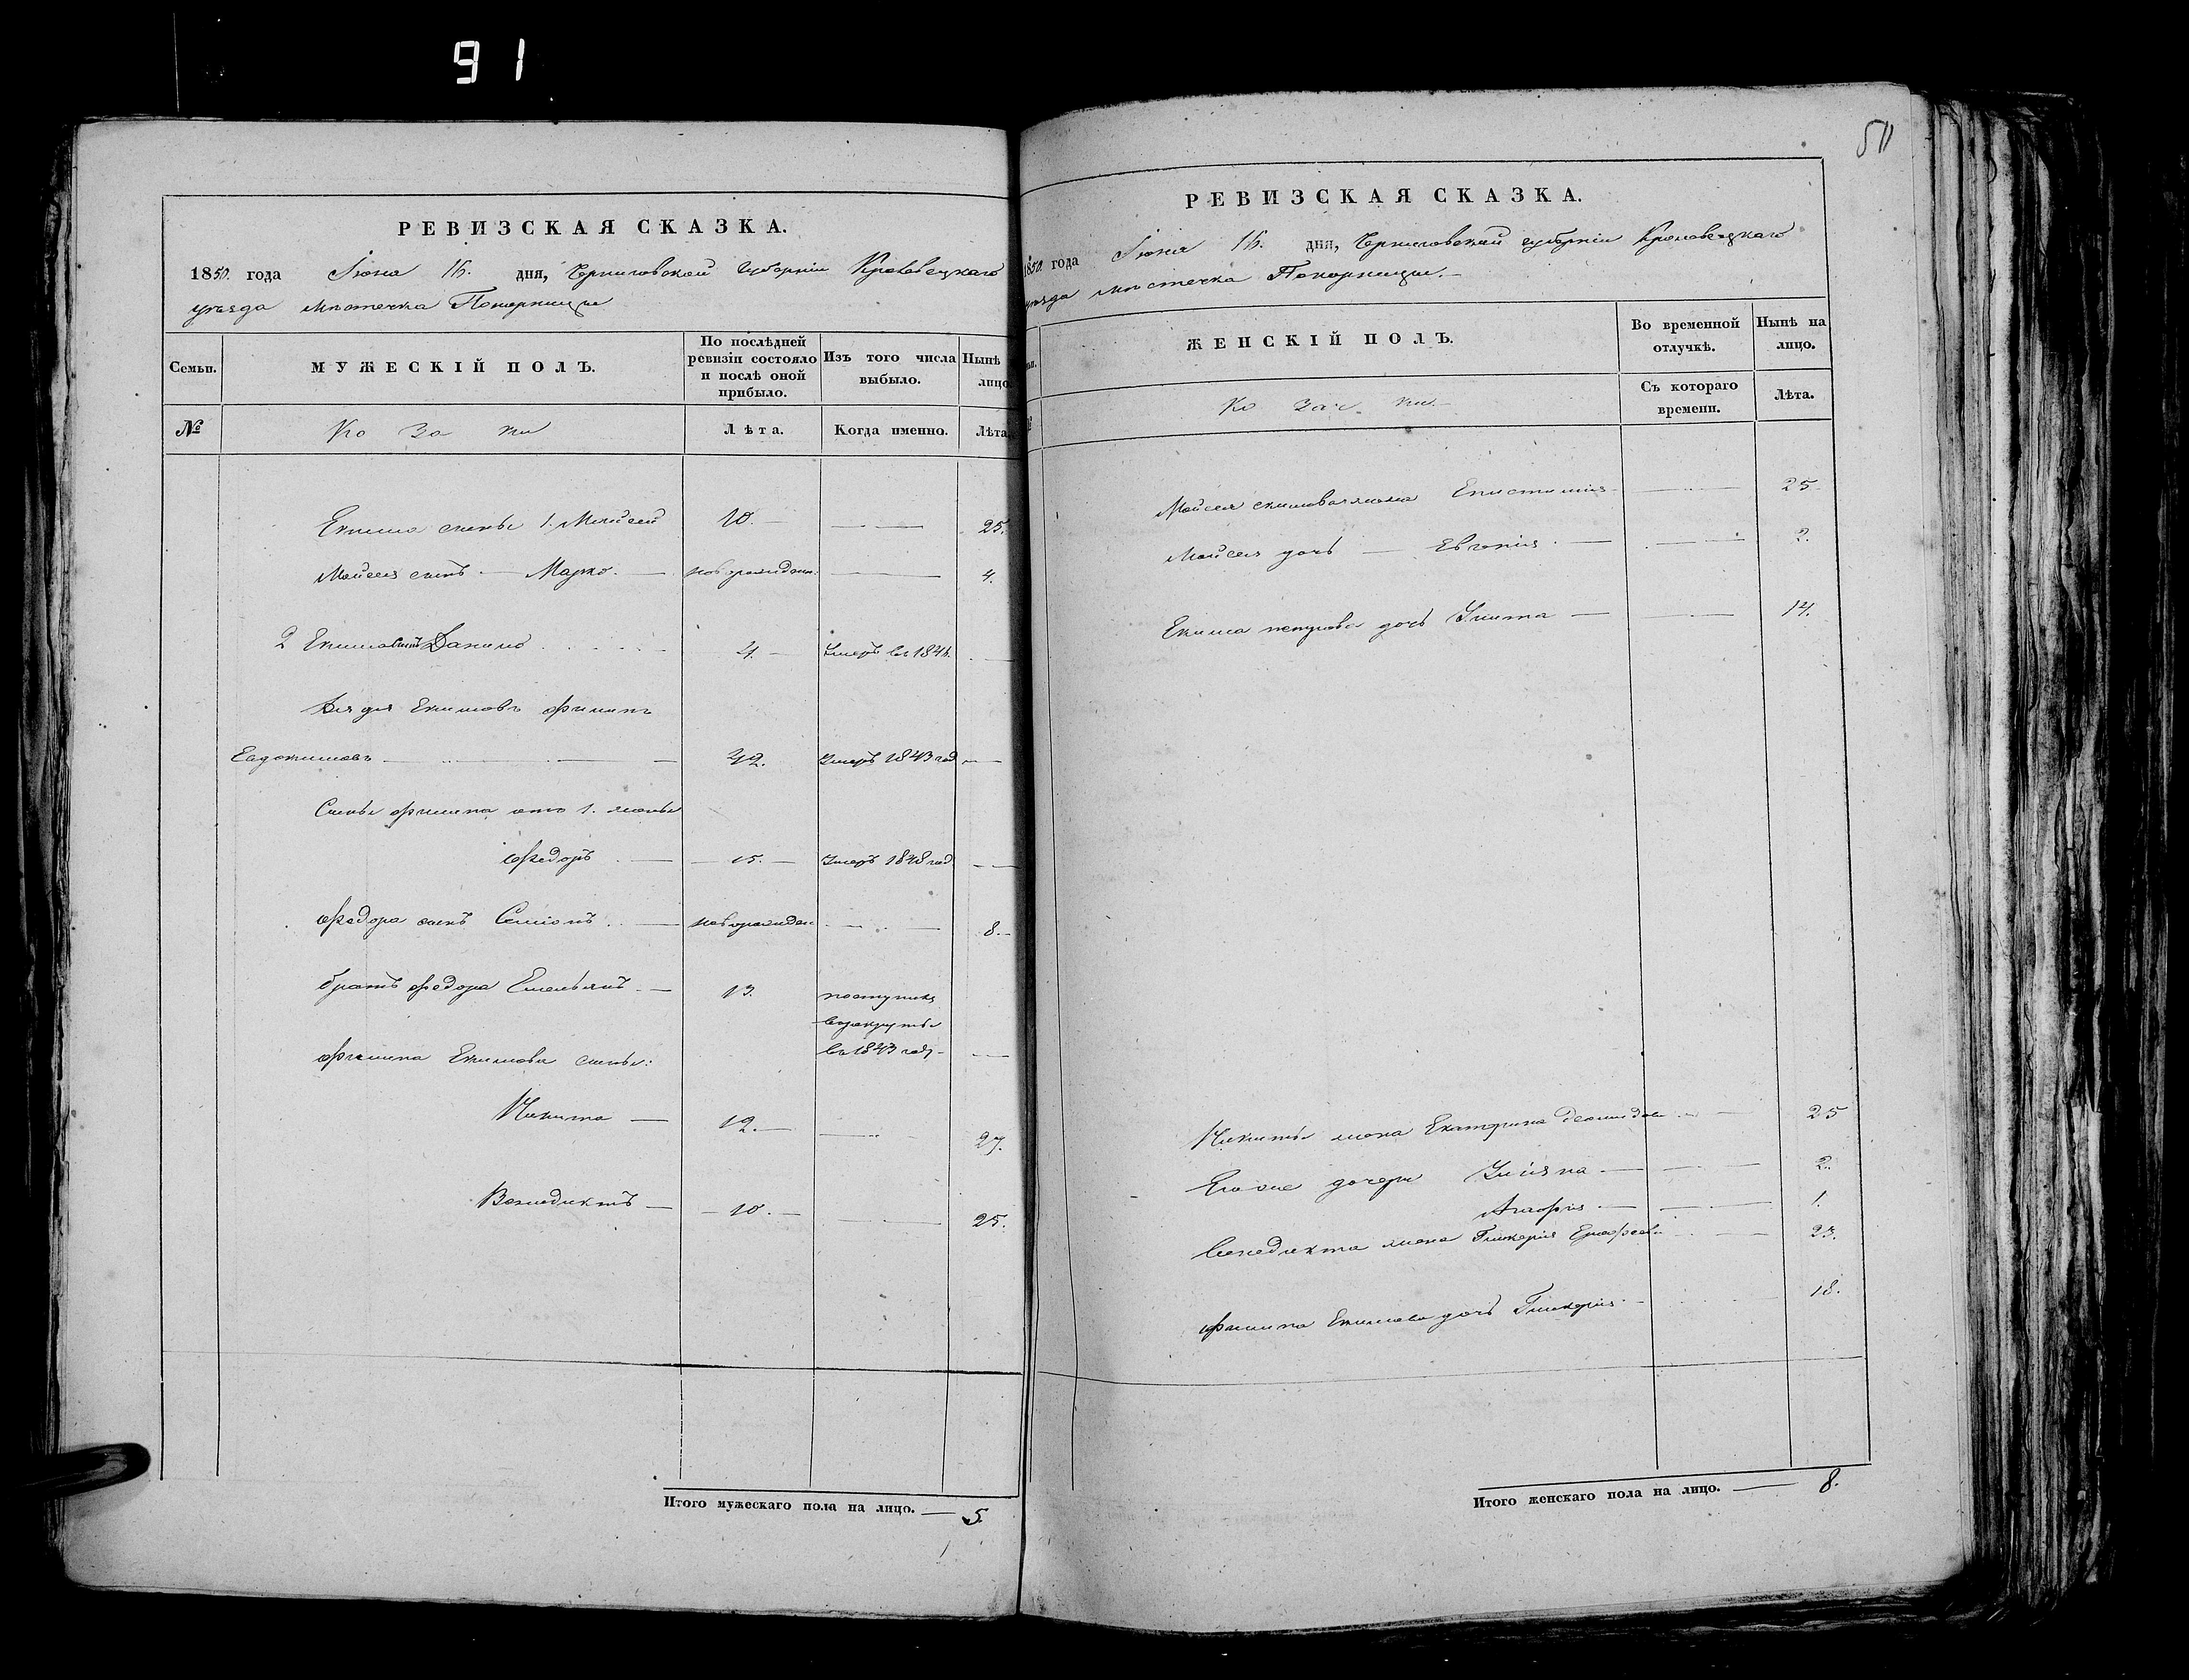 91
50
РЕВИЗСКАЯ СКАЗКА.
1850. года Іюня 16. дня, Черниговской губерніи Кролевецкаго
уѣзда мѣстечка Понорницы
Семьи.
МУЖЕСКІЙ ПОЛЪ.
По послѣдней ревизіи состояло и послѣ оной прибыло.
Изъ того числа выбыло.
Нынѣ лицо
№
Ко за ки
Лѣта.
Когда именно.
Лѣта.
Екима сыны 1. Мойсей 10. — 25.
Мойсея сынъ — Марко. — новорожден. — 4.
2 Екимовъ сынъ Данило 4. — Умеръ въ 184
Дядя Екимовъ Филипъ
Евдокимовъ — 42. Умеръ 1843 год —
Сыны Филипа отъ 1. жены
Федоръ — 15. — Умеръ 1848 год —
Федора сынъ Семіонъ — новорожден — 8.
братъ Федора Емельянъ — 13. поступилъ
в рекруты
въ 1843 году —
Филипа Екимова сыны:
Никита — 12. — 27.
Венедиктъ — 10. — 25.
Итого мужескаго пола на лицо. — 5.
РЕВИЗСКАЯ СКАЗКА.
1850. года Іюня 16. дня, Черниговской губерніи Кролевецкаго
уѣзда мѣстечка Понорницы. —
ЖЕНСКІЙ ПОЛЪ.
Во временной отлучкѣ.
Нынѣ на лицо.
Ко зач ки
Съ котораго времени.
Лѣта.
Мойсея Екимова жена Епистимия — 25
Мойсея дочь — Евгенія — 2.
Екима петрова дочь Улита — 14.
Никиты жена Екатерина Демидова — 25
Его же дочери Уліяна — 2.
Агафія — 1.
Венедикта жена Гликерія — 23.
Филипа Екимова дочь Гликерія — 18.
Итого женскаго пола на лицо. — 8.